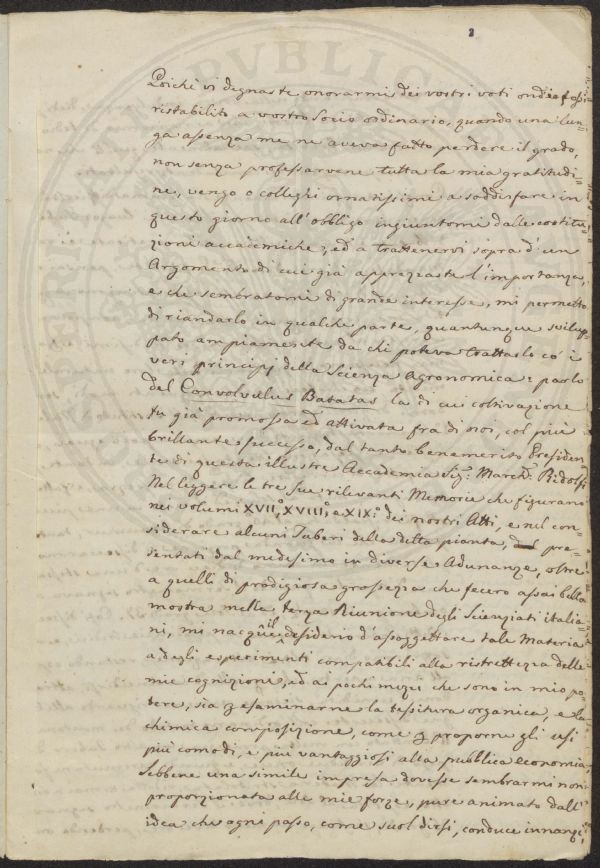 2
Poichè vi degnaste onorarmi dei vostri voti ond'io fossi
ristabilito a vostro Socio ordinario, quando una lun=
ga assenza me ne aveva fatto perdere il grado,
non senza professarvene tutta la mia gratitudi=
ne, vengo o colleghi ornatissimi a soddisfare in
questo giorno all'obbligo ingiuntomi dalle costitu=
zioni accademiche, ed a trattenervi sopra d'un
Argomento di cui già apprezzaste l'importanza,
e che sembratomi di grande interesse, mi permetto
di riandarlo in qualche parte, quantunque svilup=
pato ampiamente da chi poteva trattarlo co' i
veri principj della Scienza Agronomica: parlo
del Convolvulus Batatas la di cui coltivazione
fu già promossa ed attivata fra di noi, col più
brillante successo, dal tanto benemerito Presiden
te di questa illustre Accademia Sig: March: Ridolfi
Nel leggere le tre sue rilevanti Memorie che figurano
nei volumi XVII,° XVIII,° e XIX:° dei nostri Atti, e nel con=
siderare alcuni Tuberi della detta pianta, pre=
sentati dal medesimo in diverse Adunanze, oltre
a quelli di prodigiosa grossezza che fecero assai bella
mostra nella terza Riunione degli Scienziati italia=
ni, mi nacque il desiderio d'assoggettare tale Materia
a degli esperimenti compatibili alla ristrettezza delle
mie cognizioni, ed ai pochi mezzi che sono in mio po=
tere, sia p esaminarne la tessitura organica, e la
chimica composizione, come p proporne gli usi
più comodi, e più vantaggiosi alla pubblica economia.
Sebbene una simile impresa dovesse sembrarmi non
proporzionata alle mie forze, pure animato dall'
idea che ogni passo, come suol dirsi, conduce innanzi,